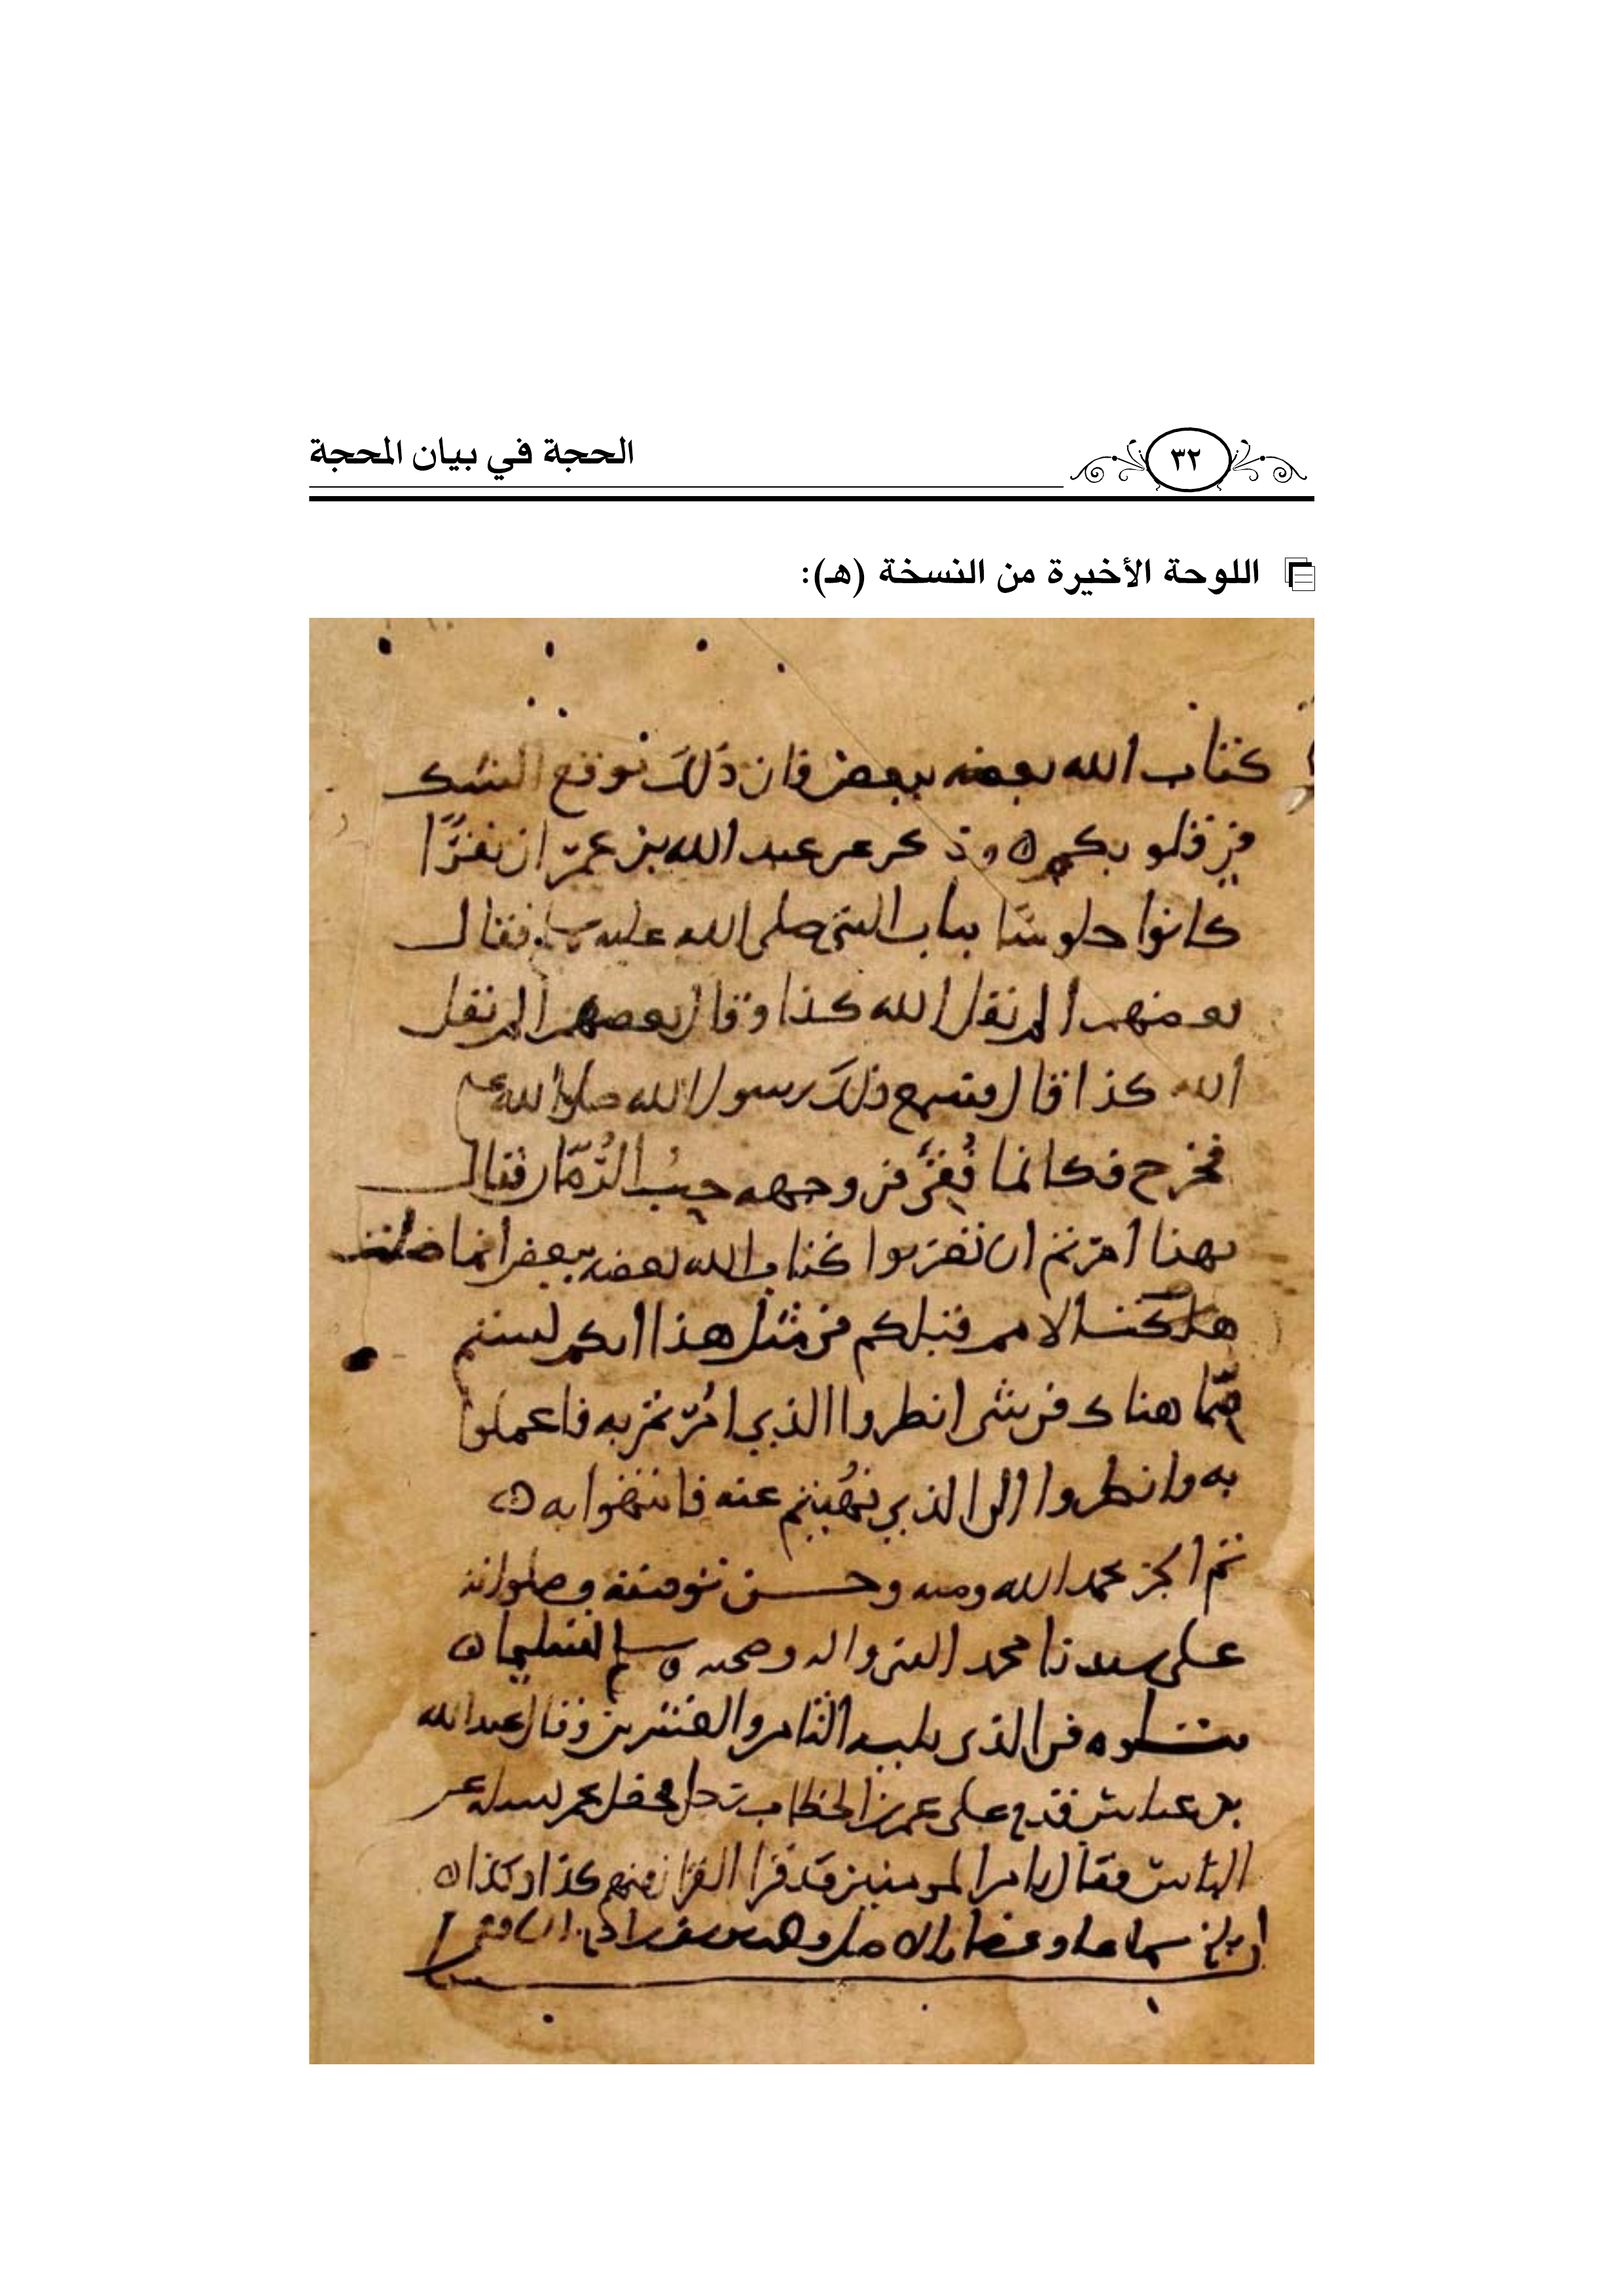 الحجة في بيان المحجة
٣٢
اللوحة الأخيرة من النسخة (هـ):
كتاب الله بعضه ببعض فان ذلك توقع الشك
في قلوبكم ه وذكر عن عبد الله بن عمر ان نفرا
كانوا جلوسا بباب النبي صلى الله عليه وسلم فقال
بعضهم الم نقل الله كذا وقال بعضهم الم نقل
الله كذا قال فسمع ذلك رسول الله صلى الله عليه
فخرج فكانما فقئ في وجهه حب الرمان فقال
بهذا امرتم ان تضربوا كتاب الله بعضه ببعض انما ضلت
هلكت الامم قبلكم في مثل هذا انكم لستم
مما هنا في شي انظروا الذي امرتم به فاعملوا
به وانظروا الى الذي نهيتم عنه فانتهوا به ه
تم الجز بحمد الله ومنه وحسن توفيقه وصلواته
على سيدنا محمد النبي واله وصحبه وسلم تسليما ه
يتلوه في الذي يليه الثامن والعشرين وقال عبد الله
بن عباس قدم على عمر بن الخطاب رجل فجعل عمر يسله عن
الناس فقال يا امير المومنين قد قرا القران منهم كذا وكذا ه
بلغ سماعا